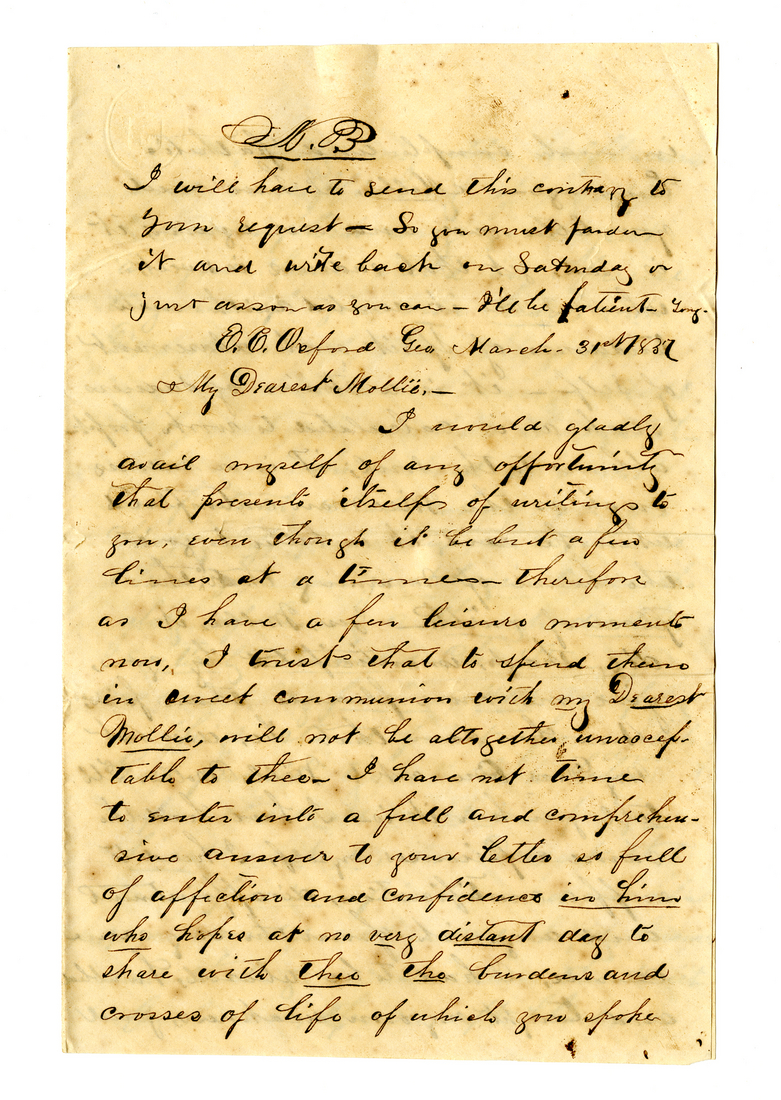 N.B
I will have to send this contrary to
your request — So you must pardon
it and write back on Saturday or
just as soon as you can — I'll be patient —
E. C. Oxford Geo March - 31st 1857
My Dearest Mollie, —
I would gladly
avail myself of any opportunity
that presents itself of writing to
you, even though it be but a few
lines at a time — therefore
as I have a few leisure moments
now, I trust that to spend them
in sweet communion with my Dearest
Mollie, will not be altogether unaccep-
table to thee — I have not time
to enter into a full and comprehen-
sive answer to your letter so full
of affection and confidence in him
who hopes at no very distant day to
share with thee the burdens and
crosses of life of which you spoke